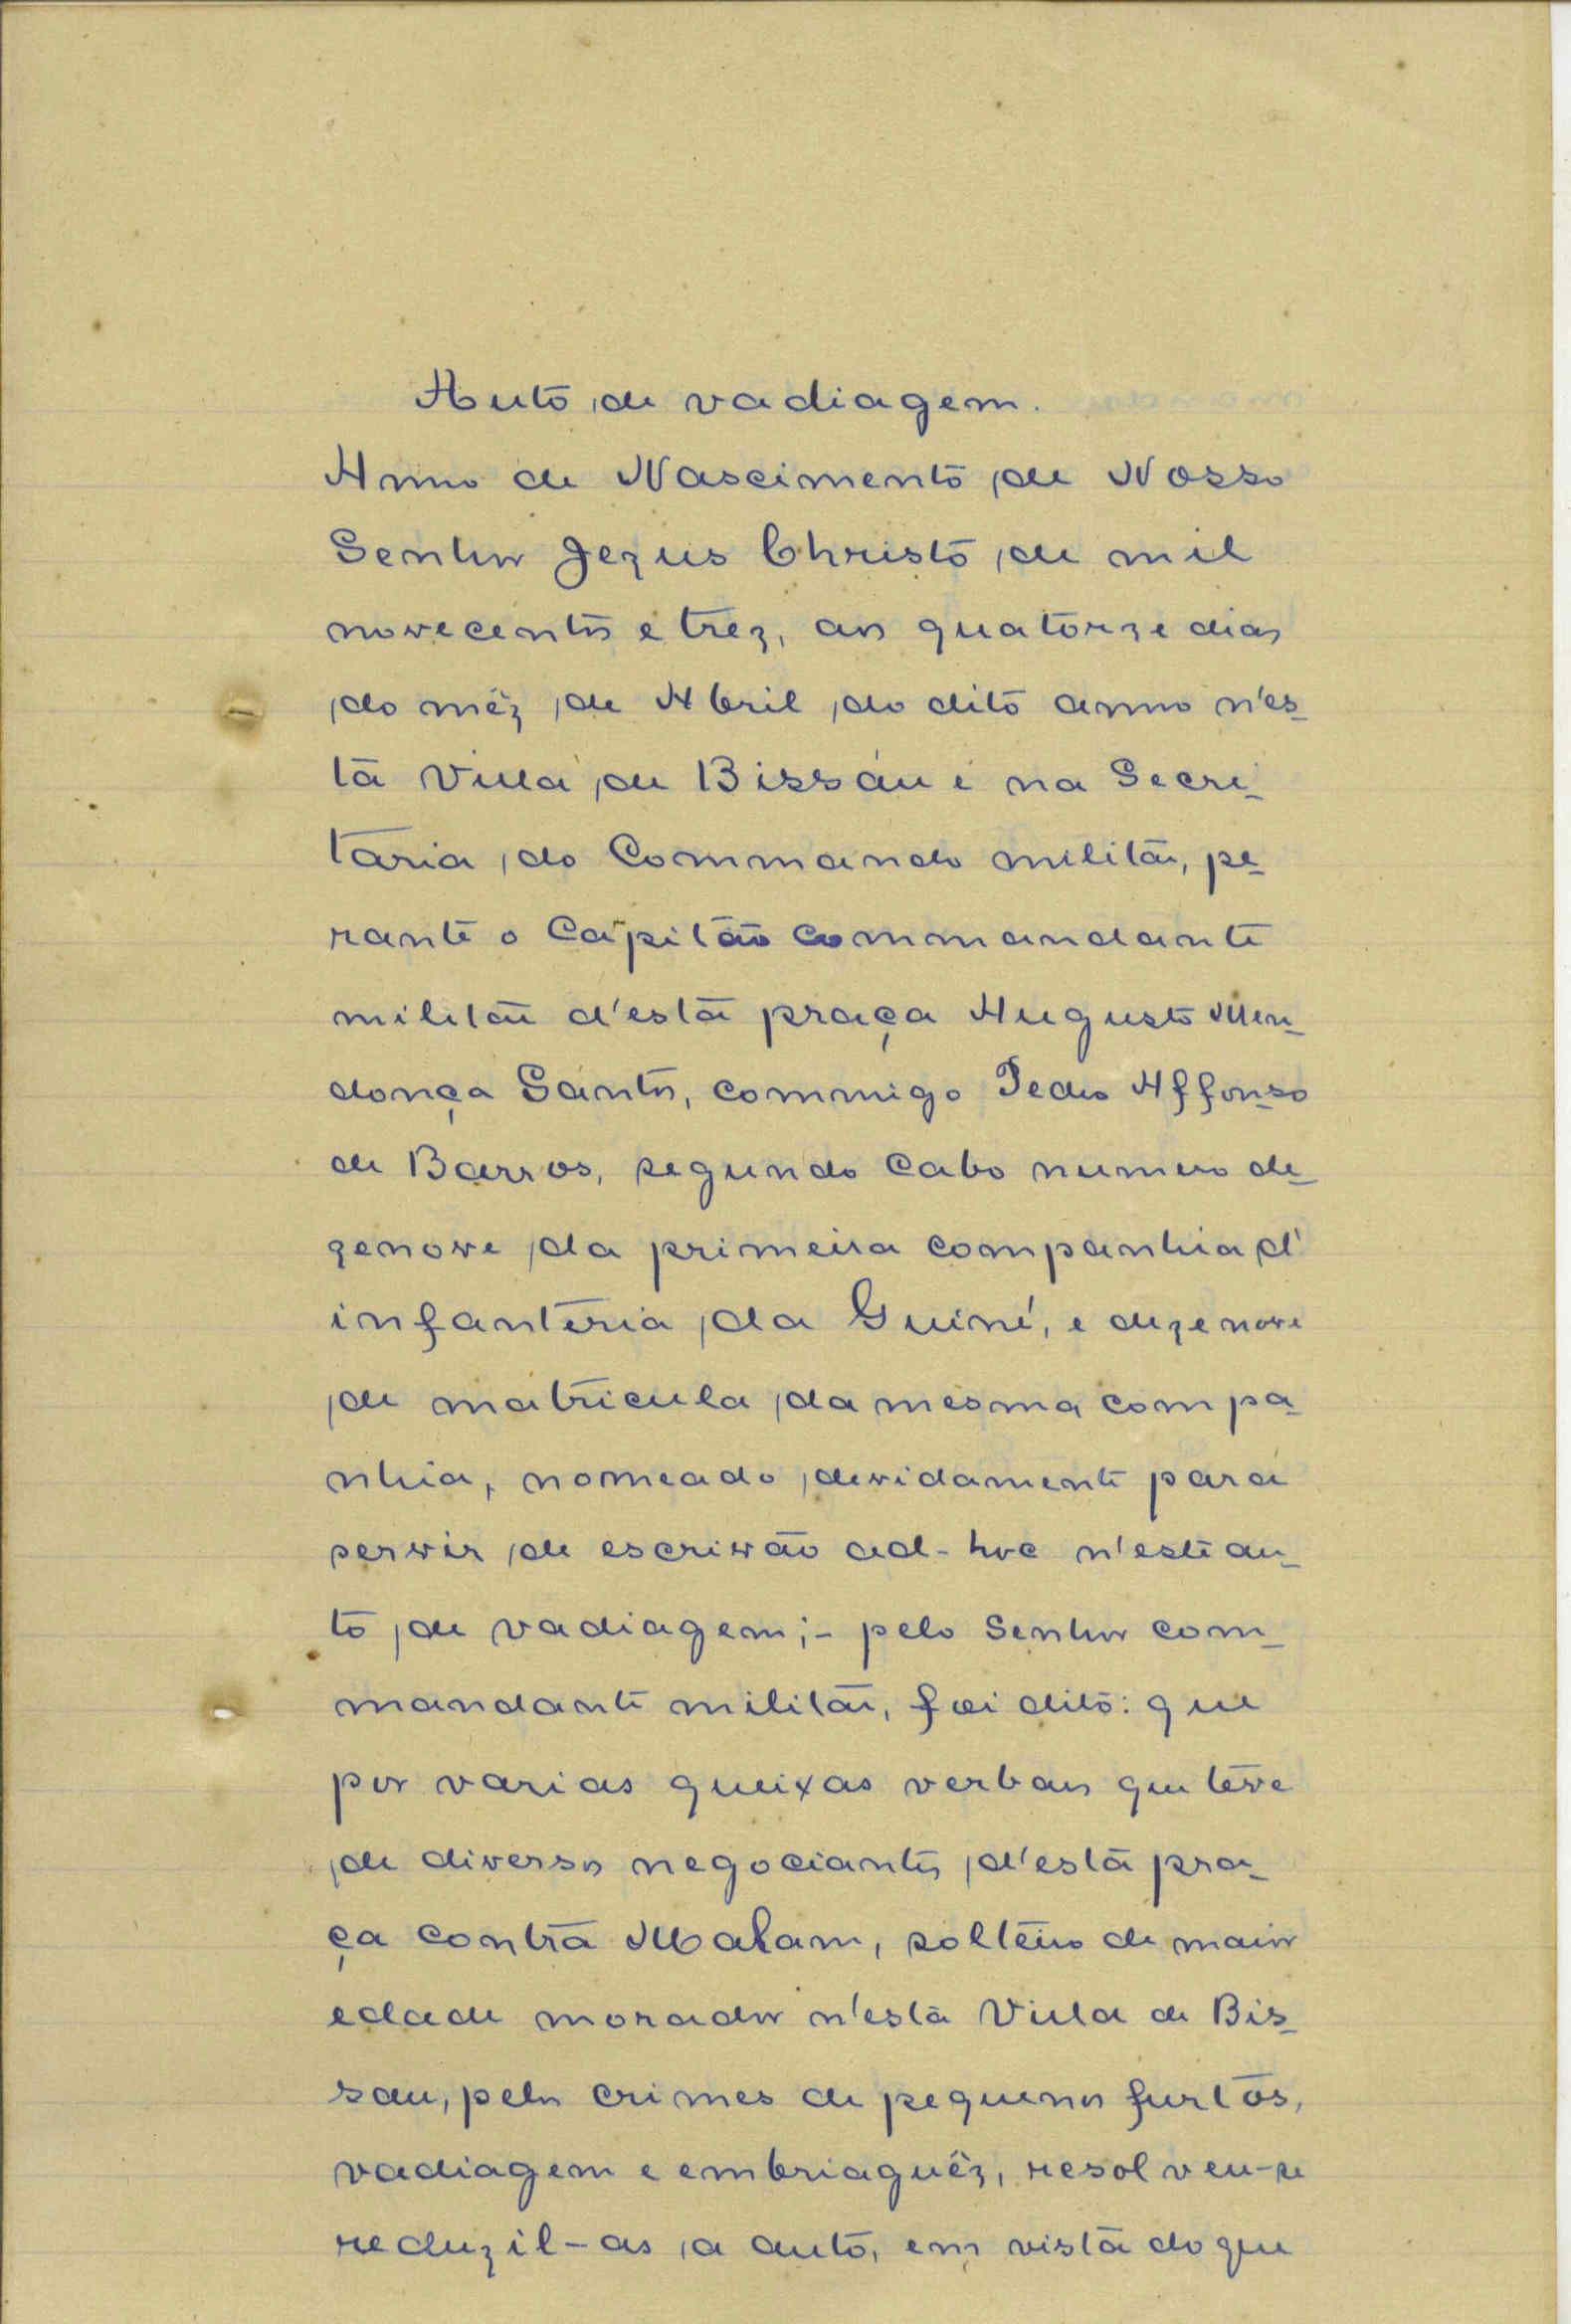 Auto de vadiagem.
Anno de Nascimento de Nosso
Senhor Jezus Christo de mil
novecentos e trez, aos quatorze dias
do mêz de Abril do dito anno n'es-
ta Villa de Bissáu e na Secre-
taria do Commando militar, pe-
rante o Capitão Commandante
militar d'esta praça Augusto Men-
donça Santos, commigo Pedro Affonso
de Barros, segundo Cabo numero de-
zenove da primeira companhia d'
infanteria da Guiné, e dezenove
de matricula da mesma compa-
nhia, nomeado devidamente para
servir de escrivão ad-hoc n'este au-
to de vadiagem;- pelo Senhor com-
mandante militar, foi dito: que
por varias queixas verbaes que teve
de diversos negociantes d'esta pra-
ça contra Malam, solteiro de maior
edade morador n'esta Villa de Bis-
sau, pelos crimes de pequenos furtos,
vadiagem e embriaguêz, resolveu-se
reduzil-as a auto, em vista do que